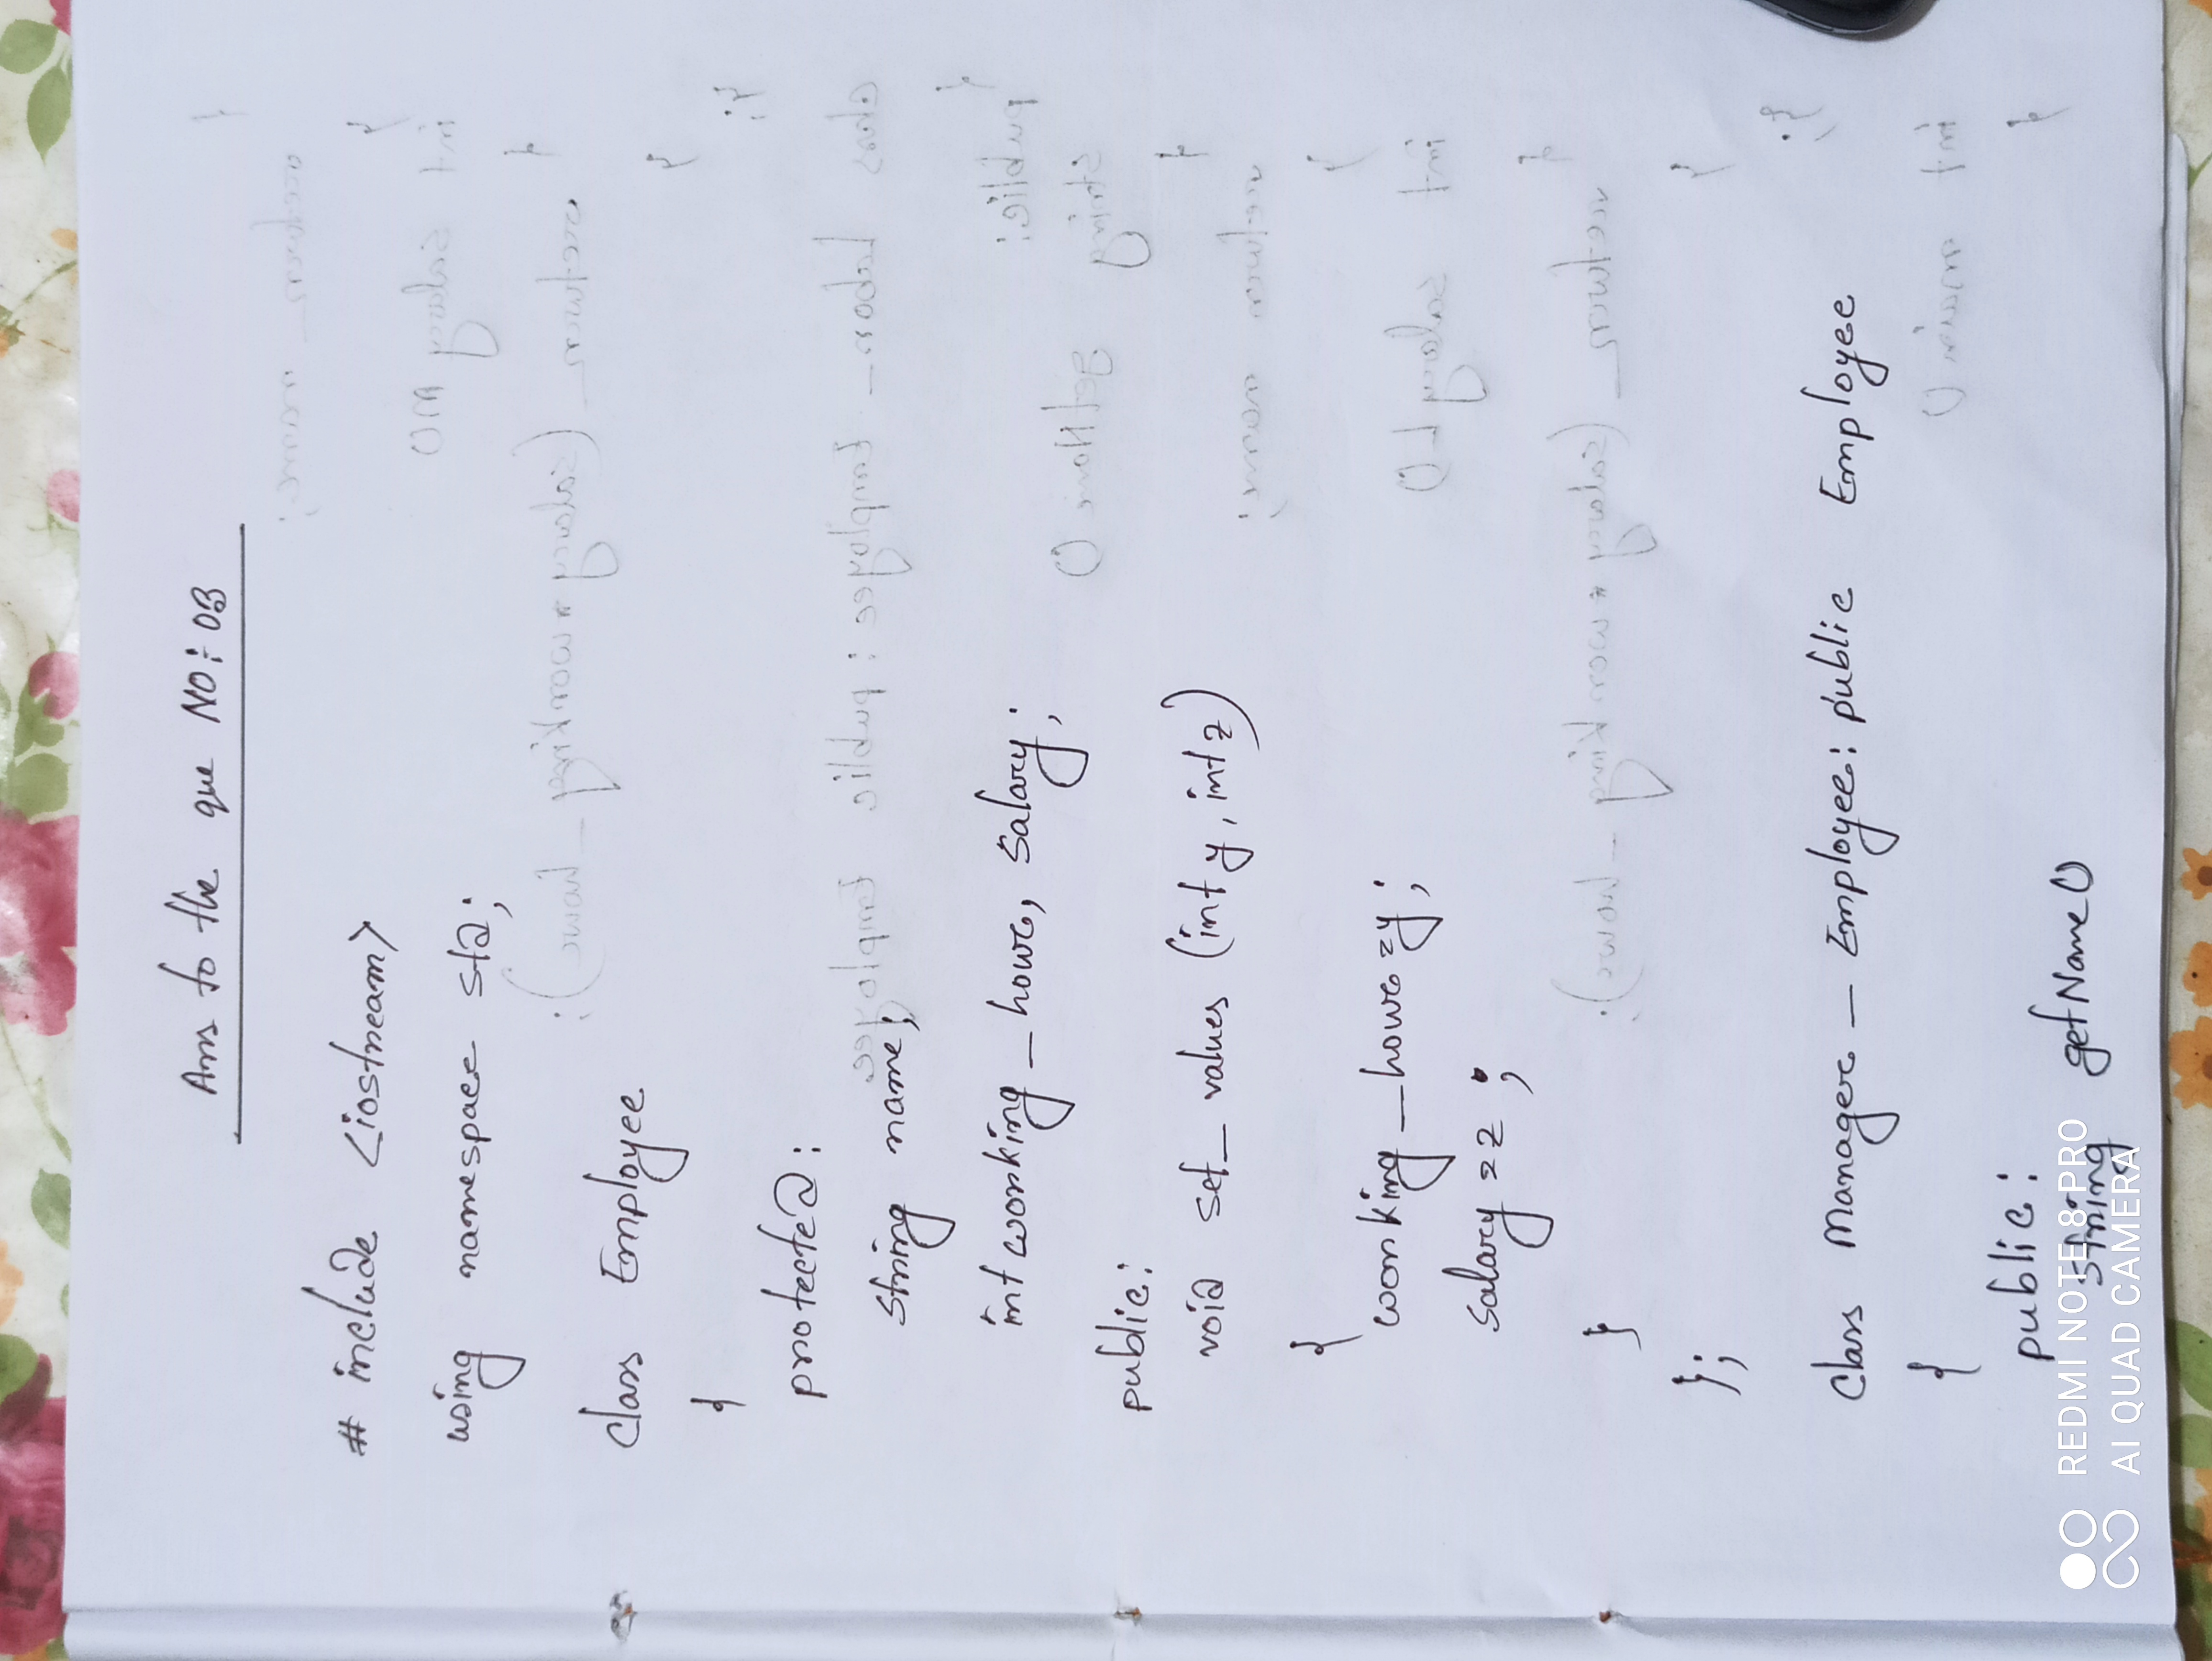 Ans to the que NO: 03
# include <iostream>
using namespace std;
class Employee
{
protected:
string name;
int working_hour, salary;
public:
void set_values (int y, int z)
{
working_hour = y;
salary = z;
}
};
class Manager_Employee: public Employee
{
public:
string getName()
REDMI NOTE 8 PRO
AI QUAD CAMERA